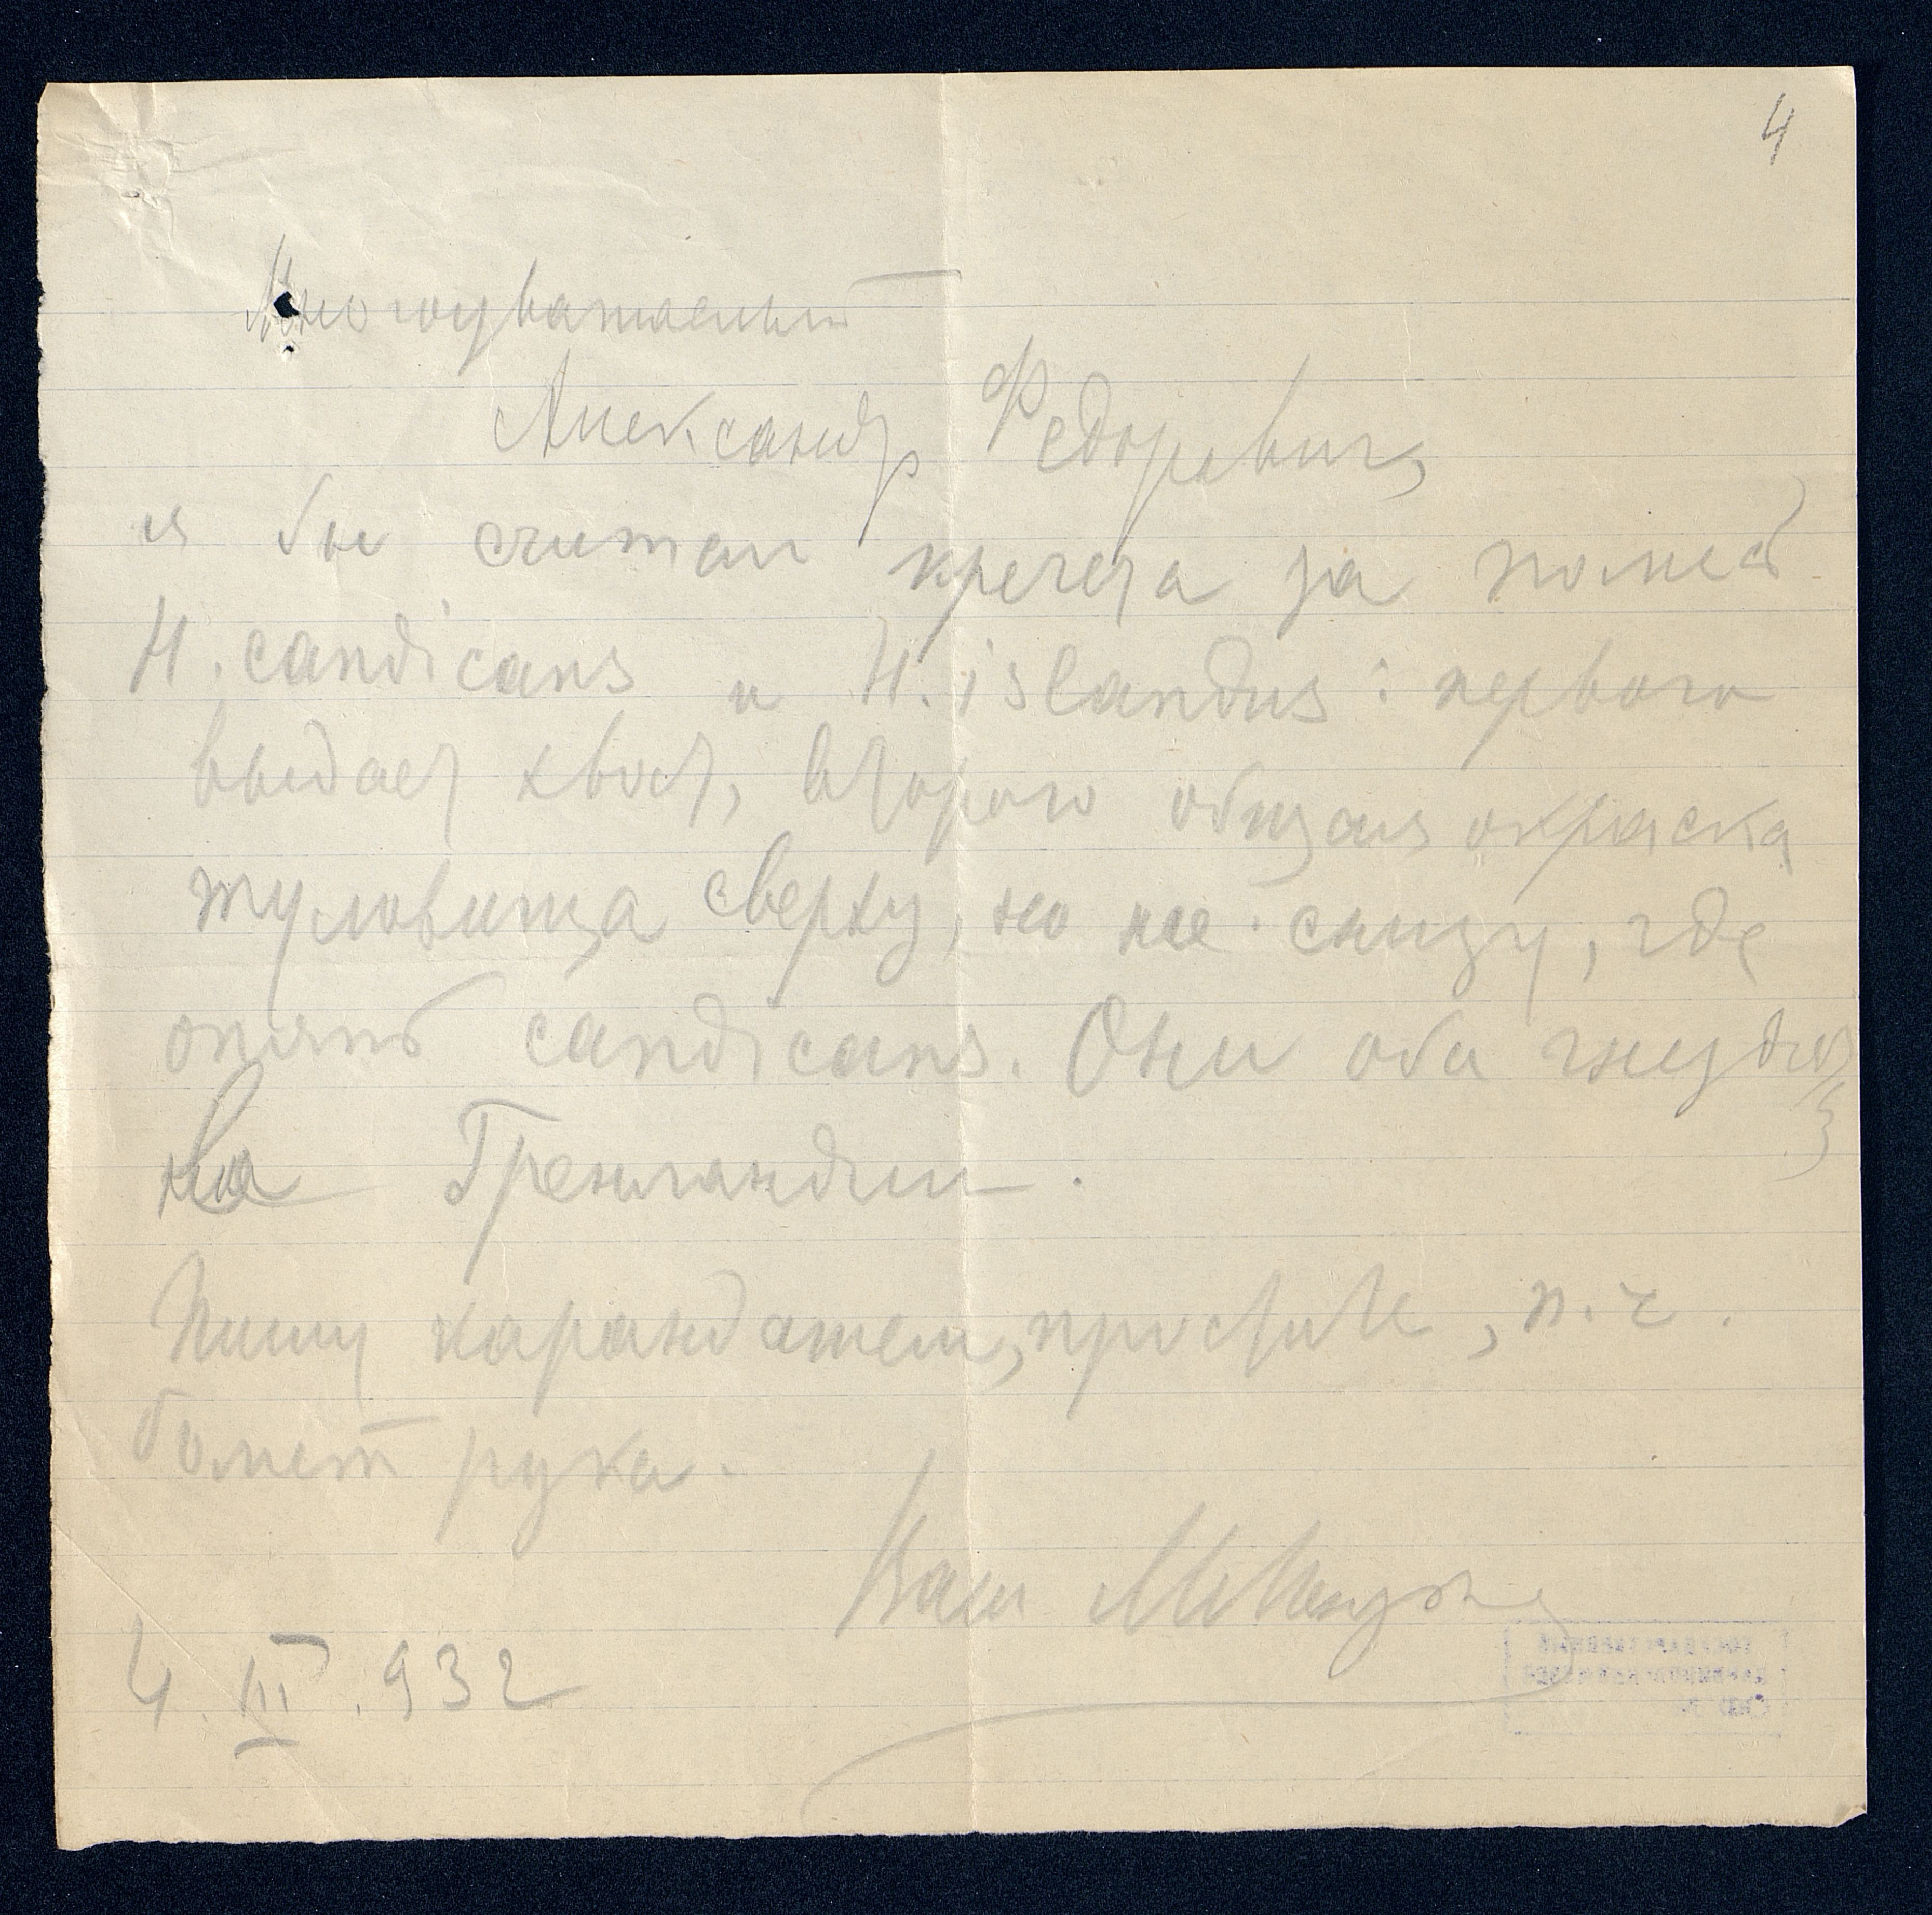 4
Многоуважаемый
Александр Федорович,
я бы считал кречета за помесь
H. candicans и H. islandus: первого
выдает хвост, второго общая окраска
туловища сверху, но не снизу, где
опять candicans. Они оба гнездят
на Гренландии.
Пишу карандашем, простите, п.ч.
болит рука.
Ваш М.
4.III.932